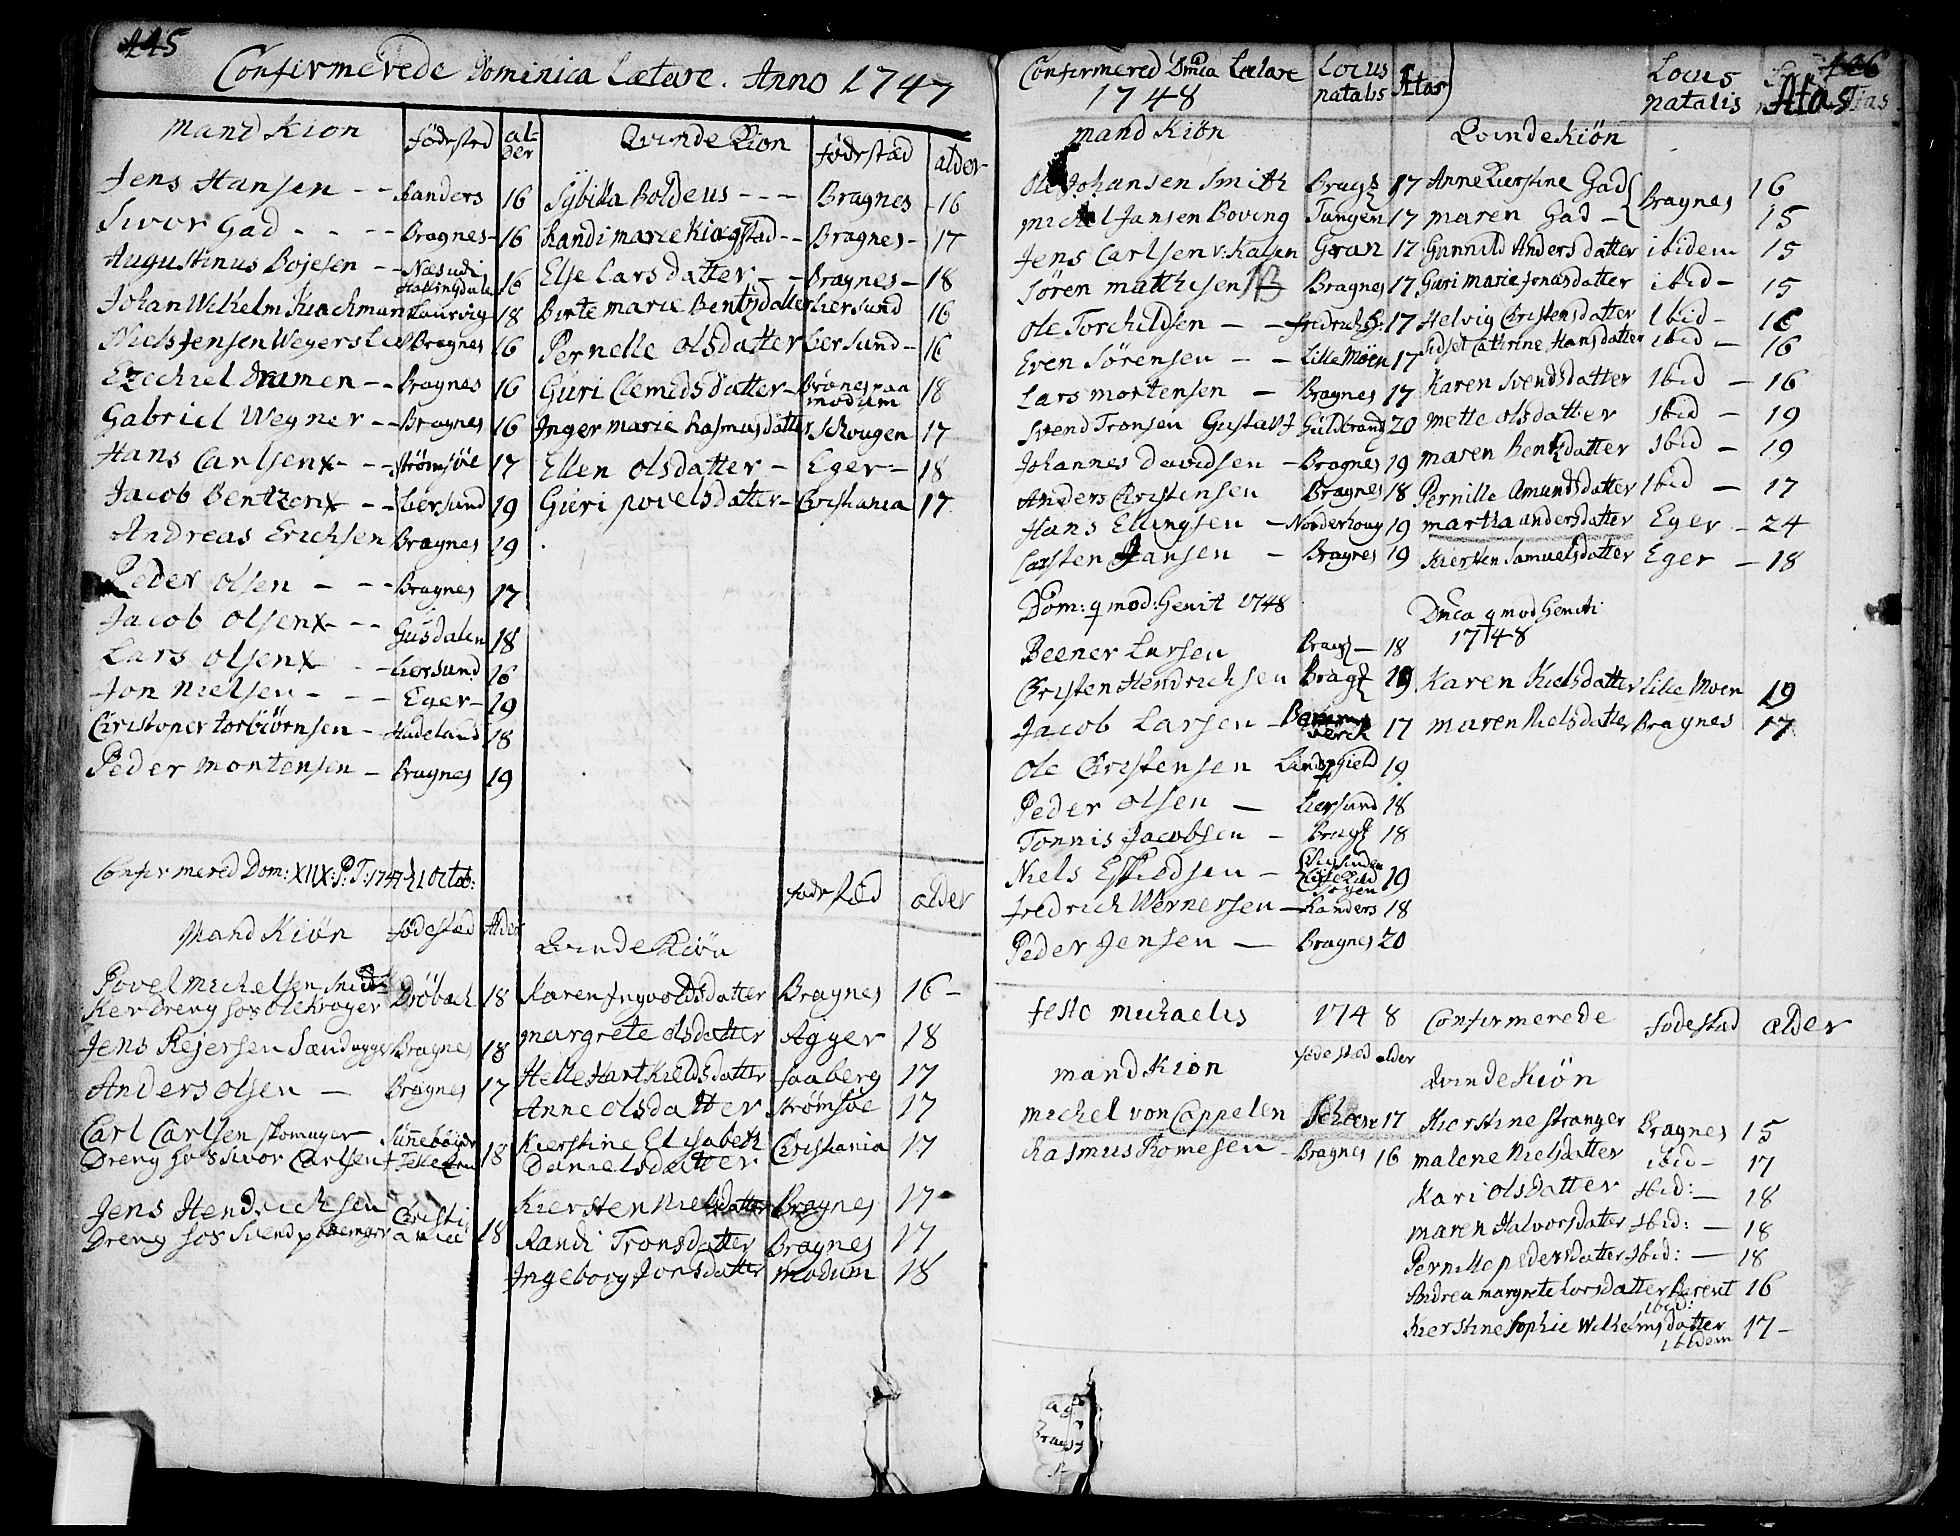 445
Confirmerede Dominica Lætare. Anno 1747
Mand Kiön fødested alder
Jens Hansen - - Randers 16
Iwor Gad - - - Bragnes - 16
Augustinus Bojesen - - Næs udi Hallingdale 16
Johan Wilhelm Laurvig 18
Niels Jensen Bragnes 16
Ezechiel Dramen - - Bragnes 16
Gabriel Wegner - - Bragnes 16
Hans Carlsen x - - Strømsöe 17
Jacob Bentzen x - - Liersund 19
Andreas Erichsen Bragnes 19
Peder Olsen - - - Bragnes 17
Jacob Olsen x - - Gusdalen 18
Lars Olsen x - - Liersund 16
Jon Nielsen - - - Eger - 19
Christoper Torbiörnsen - Hadeland 18
Peder Mortensen - Bragnes 19
Qvinde Kion fødestæd alder
Sÿbilla Boldeus - - - Bragnes - 16
Randi Marie - - Bragnes - 17
Else Larsdatter - - Bragnes - 18
Birte Marie Bentzdatter Liersund 16
Pernelle Olsdatter Liersund - 16
Guri Clemedsdatter - modum 18
Inger Marie Rasmusdatter Schougen 17
Ellen Olsdatter - Eger - 18
Guri Povelsdatter - Christiania 17
Confirmered Dom: XIIX: P: T: 1747 d. 1 Octob:
Mand Kiön fødestæd Alder
Povel Michelsen
Dreng hos Ole Kröger Dröbach 18
Jens Rejersen Bragnes 18
Anders Olsen - Bragnes 17
Carl Carlsen skomager
Dreng hos Iwor Carlsen 18
Jens Hendrichsen
Dreng hos Svend Christiania 18
Qvinde Kiön fødestæd alder
Karen Ingvoldsdatter Bragnes 16 -
Margrete Olsdatter Agger 18
Helle Hartkieldsdatter Saaberg 17
Anne Olsdatter Strömsöe 17
Kierstine Elisabeth
Danielsdatter Christiania 17
Kiersten Nielsdatter Bragnes 17
Randi Tronsdatter Bragnes 17
Ingeborg Jonsdatter Modum 18
446
Confirmered Dnica Lætare 1748 Locus natalis Ætas
Mand Kiön
Ole Johansen Smith Bragz 17
Michel Jansen Boving Tangen 17
Jens Carlsen Gran 17
Sören Mathisen Bragnes 17
Ole Torchildsen - - Fridrichs: 17
Even Sörensen - - Lille Möen 17
Lars Mortensen - Bragnes 17
Svend Tronsen Guldbrand 20
Johannes Davidsen - Bragnes 19
Anders Christensen Bragnes 18
Hans Ellingsen - Norderhoug 19
Carsten Jansen - Bragnes 19
Locus natalis Ætas
Qvinde Kiön
Anne Kierstine Gad Bragnes 16
Maren Gad - 15
Gunnild Andersdatter ibidem 15
Guri Marie Jonasdatter ibid - 15
Helvig Christensdatter Ibid - 16
Sidsel Cathrine Hansdatter ibid - 16
Karen Svendsdatter Ibid - 16
Mette Olsdatter Ibid - 19
Maren Bentzdatter Ibid - 19
Pernille Amundsdatter Ibid - 17
Martha Andersdatter Eger - 24
Kiersten Samuelsdatter Eger - 18
Dom: qmod: Genit 1748
Beener Larsen Bragz - 18
Christen Hendrichsen Bragz 19
Jacob Larsen - 17
Ole Christensen 19
Peder Olsen - Liersund 18
Tönnis Jacobsen - Bragz 18
Niels - 19
Fredrich Wernersen - Randers 18
Peder Jensen - Bragnes 20
Dnica qmod Geniti
1748
Karen Nielsdatter Lille Moen 19
Maren Nielsdatter Bragnes 17
Festo Michaelis 1748 Confirmerede fodestad alder
Mand Kiön fødestæd alder
Michel von Cappelen Schoen 17
Rasmus Romesen - Bragnes 16
Qvinde Kiön
Kierstine Stranger Bragnes 15
Malene Nielsdatter ibid - 17
Kari Olsdatter Ibid: - 18
Maren Halvorsdatter Ibid: - 18
Pernille Pedersdatter Ibid: - 18
Andrea Margrete Lorsdatter Berent ibid: 16
Kierstine Sophie Wilhelmsdatter ibidem 17 -